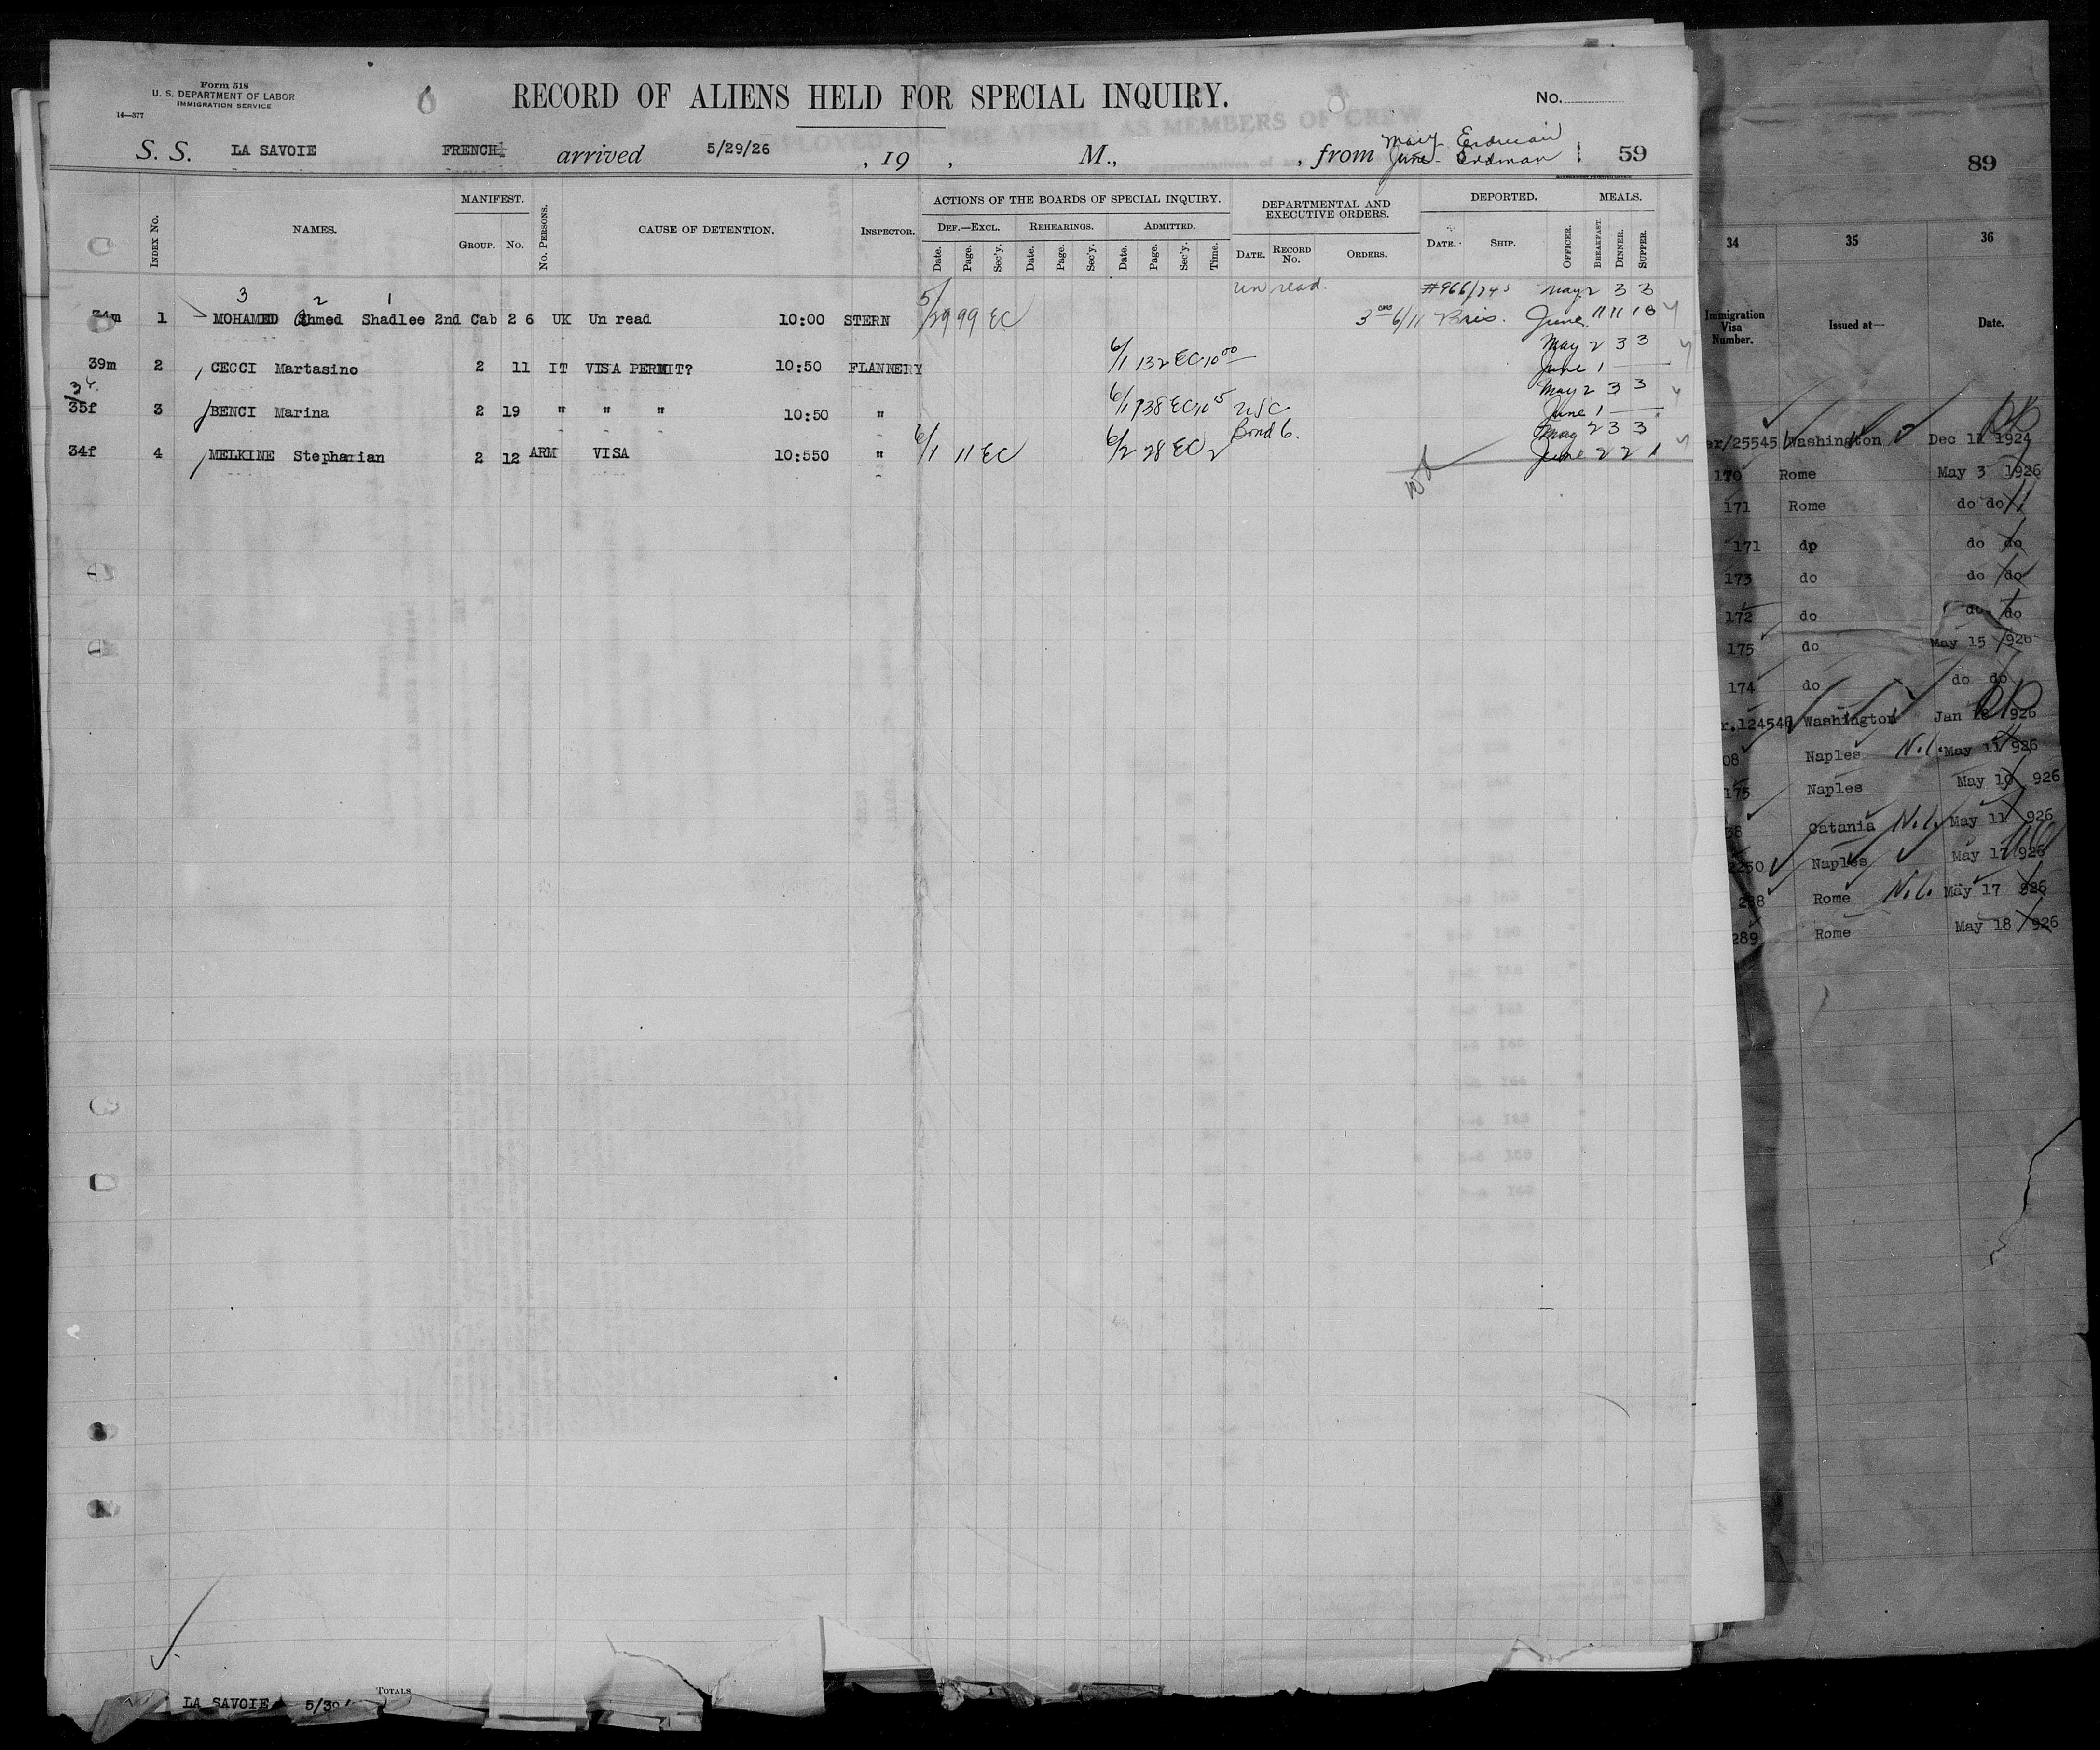 Form 518
U. S. DEPARTMENT OF LABOR
IMMIGRATION SERVICE
14—377
RECORD OF ALIENS HELD FOR SPECIAL INQUIRY.
No.
S. S. LA SAVOIE FRENCH arrived 5/29/26 , 19 , M., , from May Erdman
June - Erdman 59
INDEX No. NAMES. MANIFEST. GROUP. No. No. PERSONS. CAUSE OF DETENTION. INSPECTOR.
ACTIONS OF THE BOARDS OF SPECIAL INQUIRY.
DEF.—EXCL. REHEARINGS. ADMITTED.
Date. Page. Sec'y. Date. Page. Sec'y. Date. Page. Sec'y. Time.
DEPARTMENTAL AND EXECUTIVE ORDERS.
DATE. RECORD No. ORDERS.
DEPORTED.
DATE. SHIP. OFFICER.
MEALS.
BREAKFAST. DINNER. SUPPER.
3 2 1 un read. #966/745 May 2 3 3
34m 1 MOHAMED Ahmed Shadlee 2nd Cab 2 6 UK Un read 10:00 STERN 5/29 99 EC 6/11 June 11 11 10
May 2 3 3
39m 2 CECCI Martasino 2 11 IT VISA PERMIT? 10:50 FLANNERY 6/1 132 EC 10 00 June 1
May 2 3 3
35f 3 BENCI Marina 2 19 " " " 10:50 " 6/1 138 EC 10 15 June 1
Bond 6. May 2 3 3
34f 4 MELKINE Stephanian 2 12 ARM VISA 10:550 " 6/1 11 EC 6/2 28 EC 2 June 2 2 1
TOTALS
LA SAVOIE 5/30
89
34 35 36
Immigration Visa Number. Issued at— Date.
/25545 Washington Dec 11 1924
170 Rome May 3 1926
171 Rome do do
171 do do do
173 do do do
172 do do do
175 do May 15 926
174 do do do
124546 Washington Jan 18 926
08 Naples N.l. May 11 926
175 Naples May 10 926
38 Catania N.l. May 11 926
2250 Naples May 17 926
288 Rome N.l. May 17 926
289 Rome May 18 926